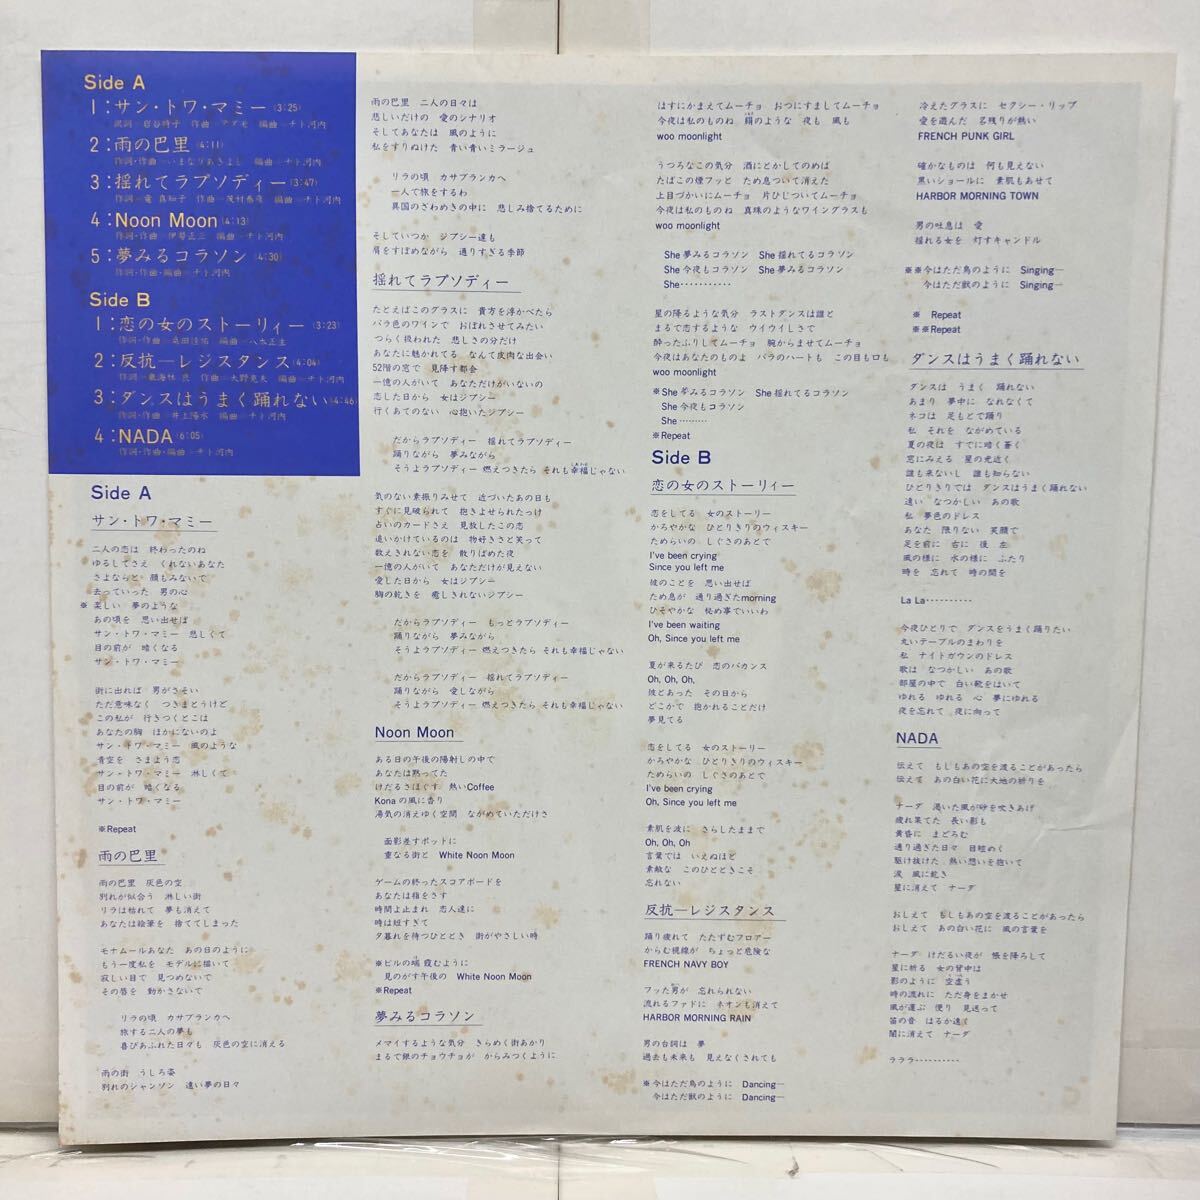 Side A
1:サン・トワ・マミー(3:25)
訳詞=岩谷時子 作曲=アダモ 編曲=チト河内
2:雨の巴里(4:11)
作詞・作曲=いまなりあきよし 編曲=チト河内
3:揺れてラプソディー(3:47)
作詞=竜 真知子 作曲= 編曲=チト河内
4:Noon Moon(4:13)
作詞・作曲=伊勢正三 編曲=チト河内
5:夢みるコラソン(4:30)
作詞・作曲・編曲=チト河内
Side B
1:恋の女のストーリィー(3:23)
作詞・作曲=桑田佳祐 編曲=八木正生
2:反抗—レジスタンス(4:04)
作詞=東海林 良 作曲=大野克夫 編曲=チト河内
3:ダンスはうまく踊れない(4:46)
作詞・作曲=井上陽水 編曲=チト河内
4:NADA(6:05)
作詞・作曲・編曲=チト河内
Side A
サン・トワ・マミー
二人の恋は 終わったのね
ゆるしてさえ くれないあなた
さよならと 顔もみないで
去っていった 男の心
※楽しい 夢のような
あの頃を 思い出せば
サン・トワ・マミー 悲しくて
目の前が 暗くなる
サン・トワ・マミー
街に出れば 男がさそい
ただ意味なく つきまとうけど
この私が 行きつくとこは
あなたの胸 ほかにないのよ
サン・トワ・マミー 風のような
青空を さまよう恋
サン・トワ・マミー 淋しくて
目の前が 暗くなる
サン・トワ・マミー
※Repeat
雨の巴里
雨の巴里 灰色の空
別れが似合う 淋しい街
リラは枯れて 夢も消えて
あなたは絵筆を 捨ててしまった
モナムールあなた あの日のように
もう一度私を モデルに描いて
寂しい目で 見つめないで
その唇を 動かさないで
リラの頃 カサブランカへ
旅する二人の夢も
喜びあふれた日々も 灰色の空に消える
雨の街 うしろ姿
別れのシャンソン 遠い夢の日々
雨の巴里 二人の日々は
悲しいだけの 愛のシナリオ
そしてあなたは 風のように
私をすりぬけた 青い青いミラージュ
リラの頃 カサブランカへ
一人で旅をするわ
異国のざわめきの中に 悲しみ捨てるために
そしていつか ジプシー達も
肩をすぼめながら 通りすぎる季節
揺れてラプソディー
たとえばこのグラスに 貴方を浮かべたら
バラ色のワインで おぼれさせてみたい
つらく扱われた 悲しさの分だけ
あなたに魅かれてる なんて皮肉な出会い
52階の窓で 見降す都会
一億の人がいて あなただけがいないの
恋した日から 女はジプシー
行くあてのない 心抱いたジプシー
だからラプソディー 揺れてラプソディー
踊りながら 夢みながら
そうよラプソディー 燃えつきたら それも幸福じゃない
気のない素振りみせて 近づいたあの日も
すぐに見破られて 抱きよせられたっけ
占いのカードさえ 見放したこの恋
追いかけているのは 物好きさと笑って
数えきれない恋を 散りばめた夜
一億の人がいて あなただけが見えない
愛した日から 女はジプシー
胸の乾きを 癒しきれないジプシー
だからラプソディー もっとラプソディー
踊りながら 夢みながら
そうよラプソディー 燃えつきたら それも幸福じゃない
だからラプソディー 揺れてラプソディー
踊りながら 愛しながら
そうよラプソディー 燃えつきたら それも幸福じゃない
Noon Moon
ある日の午後の陽射しの中で
あなたは黙ってた
けだるさほぐす 熱いCoffee
Konaの風に香り
湯気の消えゆく空間 ながめていただけさ
面影差すポットに
重なる街と White Noon Moon
ゲームの終ったスコアボードを
あなたは指をさす
時間よ止まれ 恋人達に
時は短すぎて
夕暮れを待つひととき 街がやさしい時
※ビルの端 霞むように
見のがす午後の White Noon Moon
※Repeat
夢みるコラソン
メマイするような気分 きらめく街あかり
まるで銀のチョウチョが からみつくように
はすにかまえてムーチョ おつにすましてムーチョ
今夜は私のものね 絹のような 夜も 風も
woo moonlight
うつろなこの気分 酒にとかしてのめば
たばこの煙フッと ため息ついて消えた
上目づかいにムーチョ 片ひじついてムーチョ
今夜は私のものね 真珠のようなワイングラスも
woo moonlight
She 夢みるコラソン She 揺れてるコラソン
She 今夜もコラソン She 夢みるコラソン
She…………
星の降るような気分 ラストダンスは誰と
まるで恋するような ウイウイしさで
酔ったふりしてムーチョ 腕からませてムーチョ
今夜はあなたのものよ バラのハートも この目も口も
woo moonlight
※She 夢みるコラソン She 揺れてるコラソン
She 今夜もコラソン
She………
※Repeat
Side B
恋の女のストーリィー
恋をしてる 女のストーリー
かろやかな ひとりきりのウィスキー
ためらいの しぐさのあとで
I've been crying
Since you left me
彼のことを 思い出せば
ため息が 通り過ぎたmorning
ひそやかな 秘め事でいいわ
I've been waiting
Oh, Since you left me
夏が来るたび 恋のバカンス
Oh, Oh, Oh,
彼とあった その日から
どこかで 抱かれることだけ
夢見てる
恋をしてる 女のストーリー
かろやかな ひとりきりのウィスキー
ためらいの しぐさのあとで
I've been crying
Oh, Since you left me
素肌を波に さらしたままで
Oh, Oh, Oh
言葉では いえぬほど
素敵な このひとときこそ
忘れない
反抗—レジスタンス
踊り疲れて たたずむフロアー
からむ視線が ちょっと危険な
FRENCH NAVY BOY
フッた男が 忘れられない
流れるファドに ネオンも消えて
HARBOR MORNING RAIN
男の台詞は 夢
過去も未来も 見えなくされても
※今はただ鳥のように Dancing—
今はただ獣のように Dancing—
冷えたグラスに セクシー・リップ
愛を遊んだ 名残りが熱い
FRENCH PUNK GIRL
確かなものは 何も見えない
黒いショールに 素肌もあせて
HARBOR MORNING TOWN
男の吐息は 愛
揺れる女を 灯すキャンドル
※※今はただ鳥のように Singing—
今はただ獣のように Singing—
※ Repeat
※※Repeat
ダンスはうまく踊れない
ダンスは うまく 踊れない
あまり 夢中に なれなくて
ネコは 足もとで踊り
私 それを ながめている
夏の夜は すでに暗く蒼く
窓にみえる 星の光近く
誰も来ないし 誰も知らない
ひとりきりでは ダンスはうまく踊れない
遠い なつかしい あの歌
私 夢色のドレス
あなた 限りない 笑顔で
足を前に 右に 後 左
風の様に 水の様に ふたり
時を 忘れて 時の間を
La La…………
今夜ひとりで ダンスをうまく踊りたい
丸いテーブルのまわりを
私 ナイトガウンのドレス
歌は なつかしい あの歌
部屋の中で 白い靴をはいて
ゆれる ゆれる 心 夢にゆれる
夜を忘れて 夜に向って
NADA
伝えて もしもあの空を渡ることがあったら
伝えて あの白い花に大地の祈りを
ナーダ 渇いた風が砂を吹きあげ
疲れ果てた 長い影も
黄昏に まどろむ
通り過ぎた日々 目眩めく
駆け抜けた 熱い想いを抱いて
涙 風に乾き
星に消えて ナーダ
おしえて もしもあの空を渡ることがあったら
おしえて あの白い花に 風の言葉を
ナーダ けだるい夜が 帳を降ろして
星に祈る 女の背中は
影のように 空虚う
時の流れに ただ身をまかせ
風が運ぶ 便り 見送って
笛の音 はるか遠く
闇に消えて ナーダ
ラララ…………